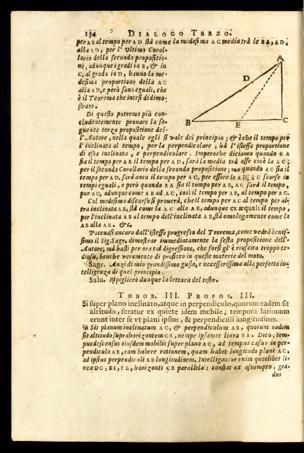 134 DIALOGO TERZO.
per AB al tempo per AD stà come la medesima AC media trà le BA, AD,
alla AD, per l' Ultimo Corol-
lario della seconda propositio-
ne, adunque i gradi in B, & in
C, al grado in D, hanno la me-
desima proportione della AC
alla AD, e però sono eguali, che
è il Teorema che intesi di dimo-
strare.
A
D
B E C
Di questo potremo più con-
cludentemente provare la se-
guente terza propositione del-
l' Autore, nella quale egli si vale del principio; & è che il tempo per
l' inclinata al tempo, per la perpendicolare, hà l' istessa proportione
di essa inclinata, e perpendicolare. Imperoche diciamo quando BA
sia il tempo per AB il tempo per AD, sarà la media trà esse cioè la AC;
per il secondo Corollario della seconda propositione; ma quando AC sia il
tempo per AD, sarà anco il tempo per AC, per essere le AD, AC scorse in
tempi eguali, e però quando BA sia il tempo per AB, AC sarà il tempo,
per AC, adunque come AB ad AC, così il tempo per AB, al tempo per AC.
Col medesimo discorso si proverà, che il tempo per AC al tempo per al-
tra inclinata AE, stà come la AC alla AE, adunque ex equali il tempo,
per l'inclinata AB al tempo dell' inclinata AE, stà omologamente come la
AB alla AE. &c.
Potevasi ancora dall' istesso progresso del Teorema, come vedrà benis-
simo il Sig. Sagr. dimostrar immediatamente la sesta propositione dell'
Autore, mà basti per ora tal digressione, che forsi gli è riuscita troppo te-
diosa, benche veramente di profitto in queste materie del moto.
Sagr. Anzi di mio grandissimo gusto, e necessarissima alla perfetta in-
telligenza di quel principio.
Salu. Ripiglierò dunque la lettura del testo.
THEOR. III. PROPOS. III.
Si super plano inclinato, atque in perpendiculo, quorum eadem sit
altitudo, feratur ex quiete idem mobile; tempora lationum
erunt inter se vt plani ipsius, & perpendiculi longitudines.
Sit planum inclinatum AC, & perpendiculum AB, quorum eadem
sit altitudo supra horizontem CB, nempe ipsamet linea BA. Dico, tem-
pus descensus eiusdem mobilis super plano AC, ad tempus casus in per-
pendiculo AB, eam habere rationem, quam habet longitudo plani AC,
ad ipsius perpendiculi AB longitudinem. Intelligantur enim quotlibet li-
neæ DG, EI, FL, horizonti CB parallelæ: constat ex assumpto, gra-
dus